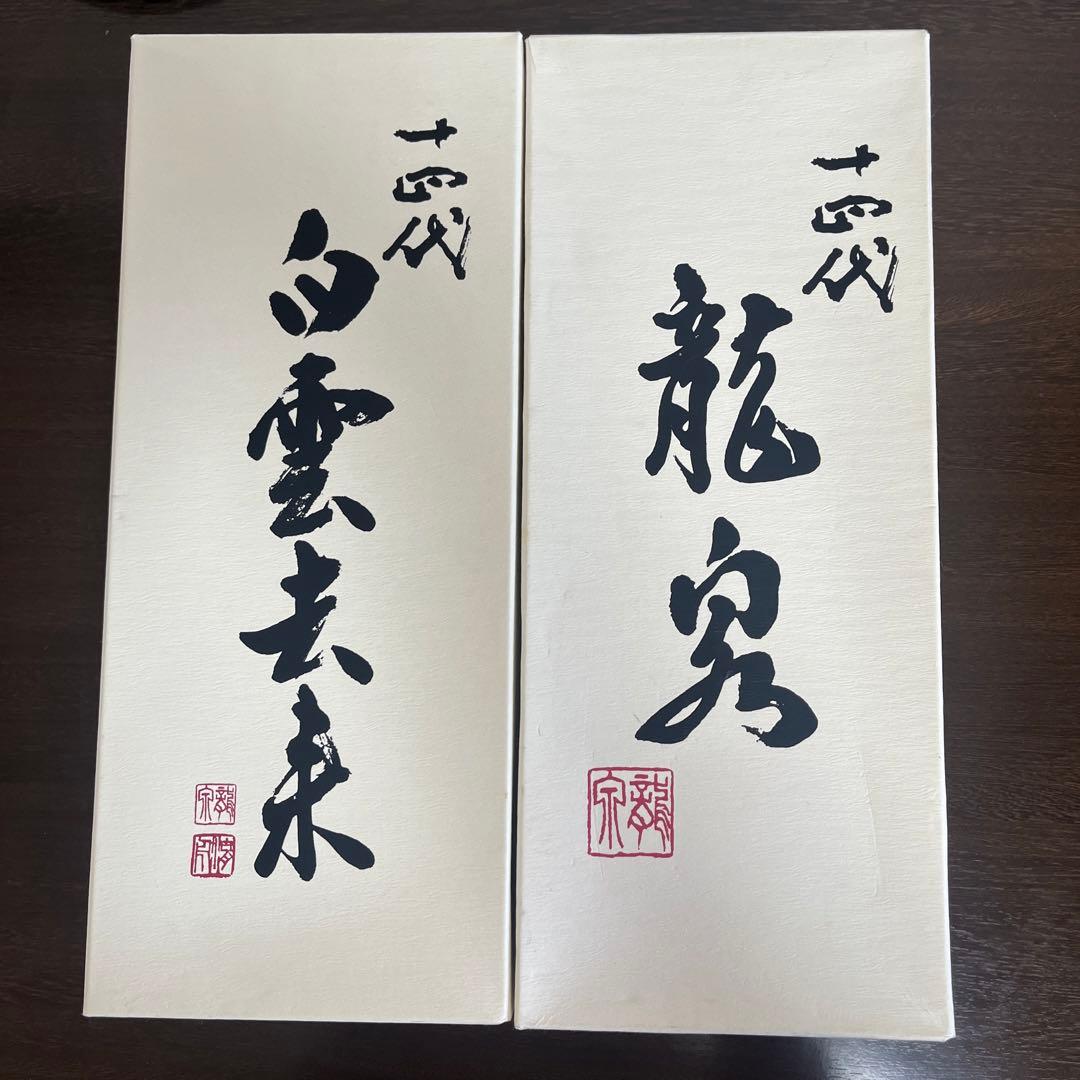 十四代
白雲去来
十四代
龍泉
龍宗